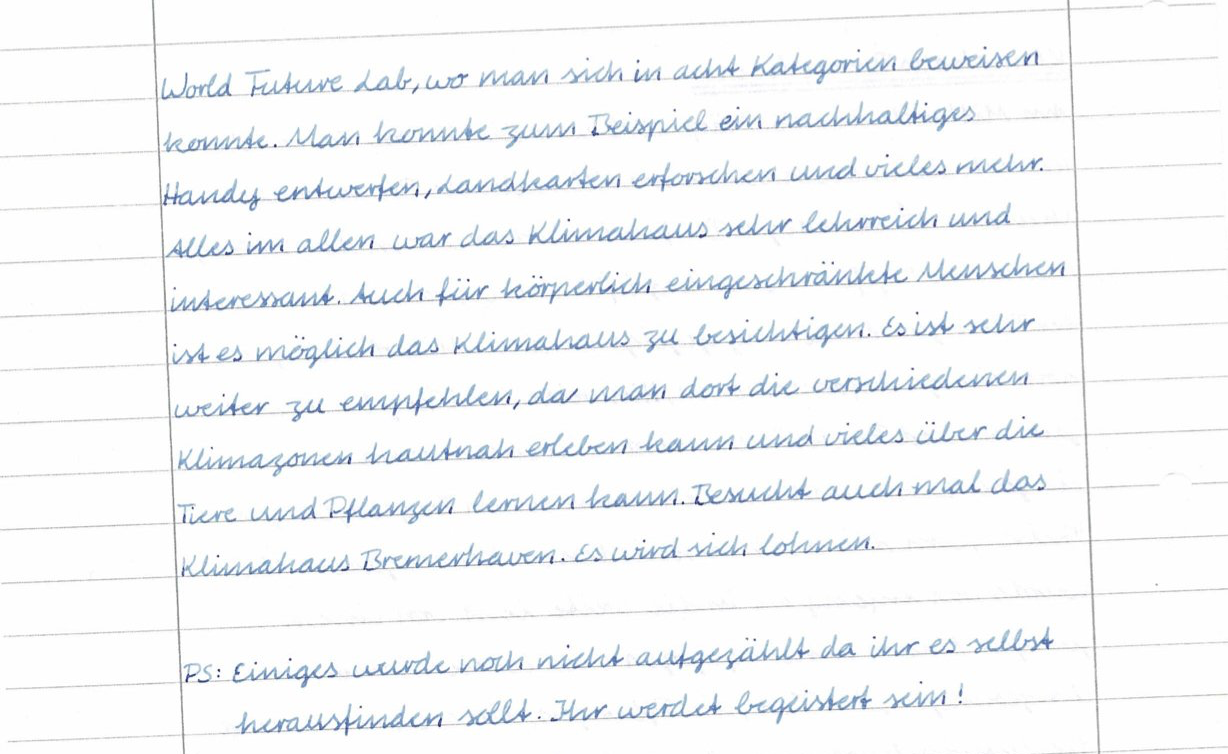 World Future Lab, wo man sich in acht Kategorien beweisen
konnte. Man konnte zum Beispiel ein nachhaltiges
Handy entwerfen, Landkarten erforschen und vieles mehr.
Alles im allen war das Klimahaus sehr lehrreich und
interessant. Auch für körperlich eingeschränkte Menschen
ist es möglich das Klimahaus zu besichtigen. Es ist sehr
weiter zu empfehlen, da man dort die verschiedenen
Klimazonen hautnah erleben kann und vieles über die
Tiere und Pflanzen lernen kann. Besucht auch mal das
Klimahaus Bremerhaven. Es wird sich lohnen.
PS: Einiges wurde noch nicht aufgezählt da ihr es selbst
herausfinden sollt. Ihr werdet begeistert sein!